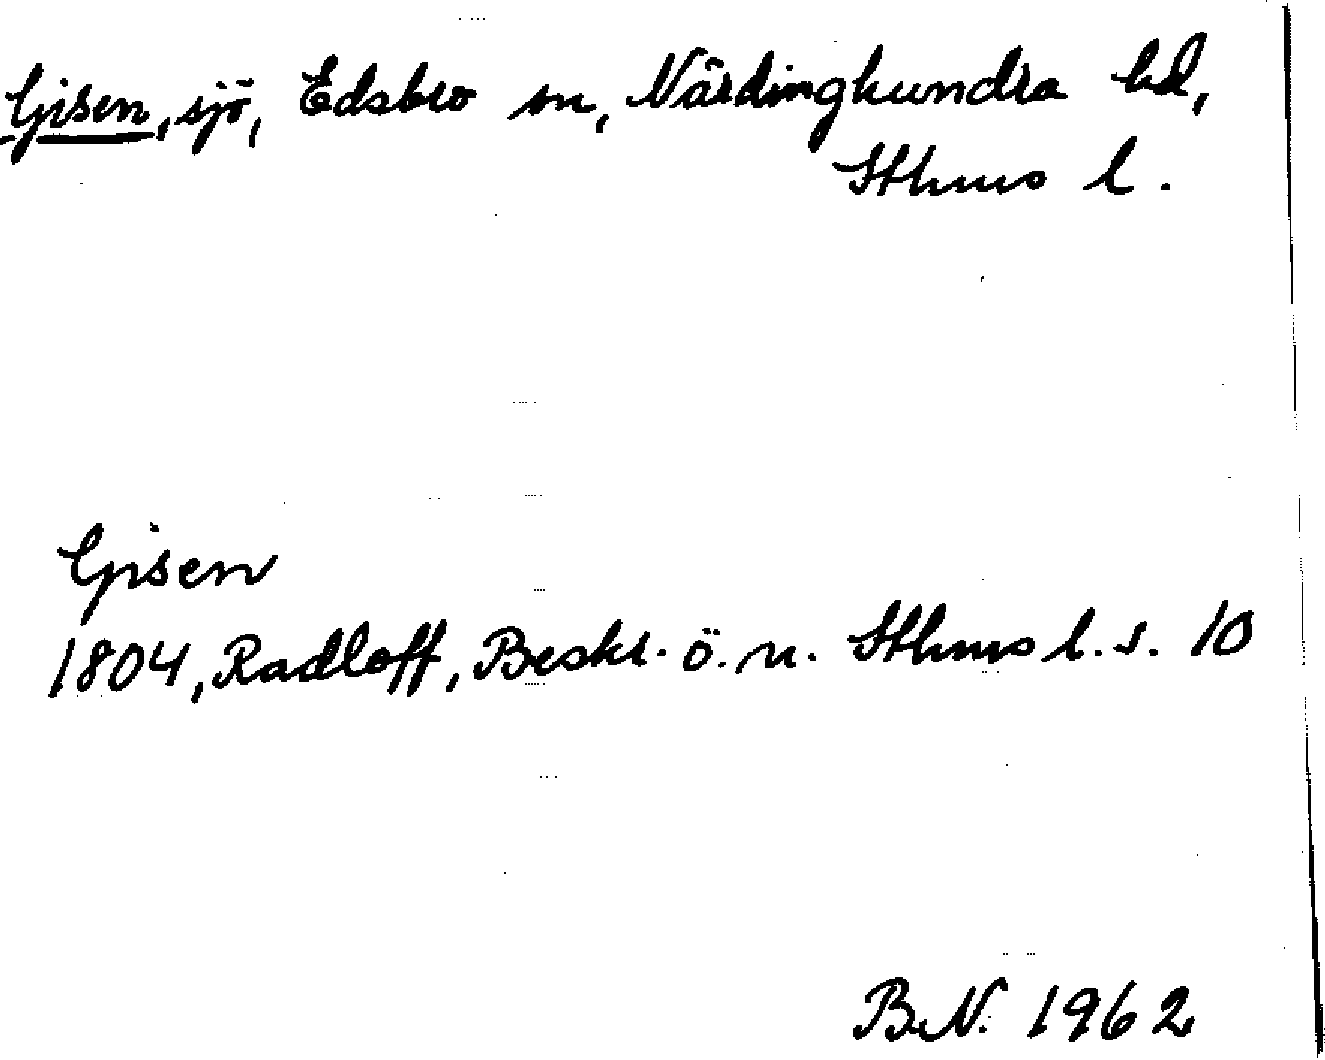 Gisen, sjö, Edsbro sn, Närdinghundra hd,
Sthms l.
Gisen
1804, Radloff, Beskr. ö. n. Sthms l. s. 10
B.N. 1962